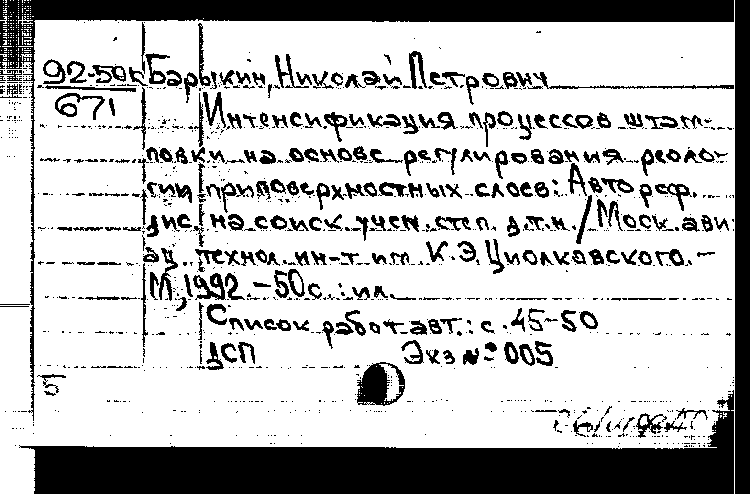 92-50к Барыкин, Николай Петрович
671
Интенсификация процессов штам-
повки на основе регулирования реоло-
гии приповерхностных слоев: Автореф.
дис. на соиск. учен. степ. д.т.н. / Моск. ави
ац. технол. ин-т им. К.Э. Циолковского. -
М., 1992. - 50 с. : ил.
Список работ авт.: с. 45-50
ДСП Экз № 005
5